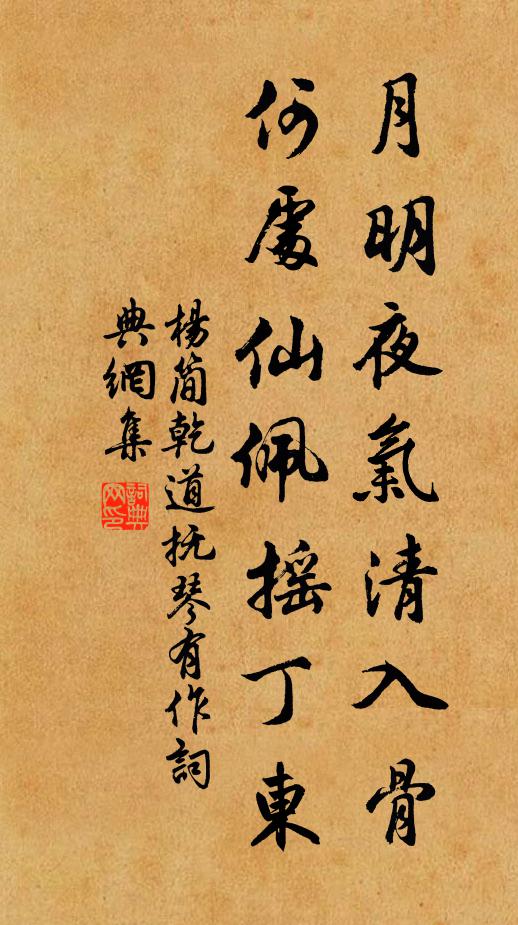 月明夜氣清入骨
何處仙佩搖丁東
楊簡乾道抚琴有作詞
典網集
詞典
网印